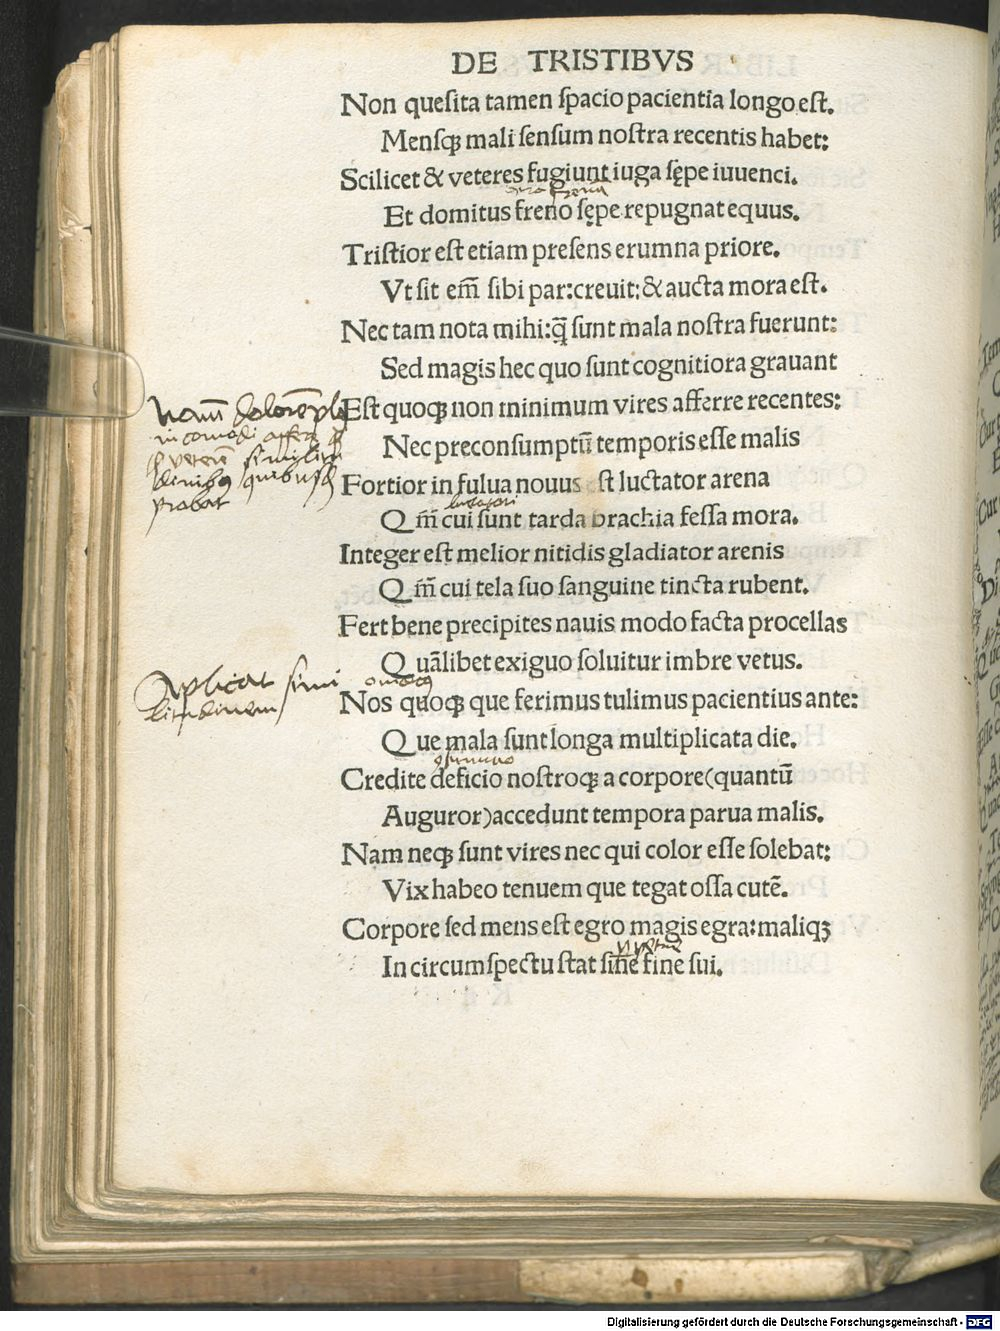 DE TRISTIBVS
Non quesita tamen ſpacio pacientia longo eſt.
Menſqꝫ mali ſenſum noſtra recentis habet:
Scilicet & veteres fugiunt iuga ſępe iuuenci.
Et domitus freno ſępe repugnat equus.
Triſtior eſt etiam preſens erumna priore.
Vt ſit em̃ ſibi par:creuit:& aucta mora eſt.
Nec tam nota mihi:q̃ ſunt mala noſtra fuerunt:
Sed magis hec quo ſunt cognitiora grauant
Eſt quoqꝫ non minimum vires afferre recentes:
Nec preconſumptũ temporis eſſe malis
Fortior in fulua nouus ſt luctator arena
Qm̃ cui ſunt tarda brachia feſſa mora.
Integer eſt melior nitidis gladiator arenis
Qm̃ cui tela ſuo ſanguine tincta rubent.
Fert bene precipites nauis modo facta procellas
Quãlibet exiguo ſoluitur imbre vetus.
Nos quoqꝫ que ferimus tulimus pacientius ante:
Que mala ſunt longa multiplicata die.
Credite deficio noſtroqꝫ a corpore(quantũ
Auguror)accedunt tempora parua malis.
Nam neqꝫ ſunt vires nec qui color eſſe ſolebat:
Vix habeo tenuem que tegat oſſa cutẽ.
Corpore ſed mens eſt egro magis egra:maliqꝫ
In circumſpectu ſtat ſine fine ſui.
probat
Aplicat simi
litudinem
Digitalisierung gefördert durch die Deutsche Forschungsgemeinschaft - DFG